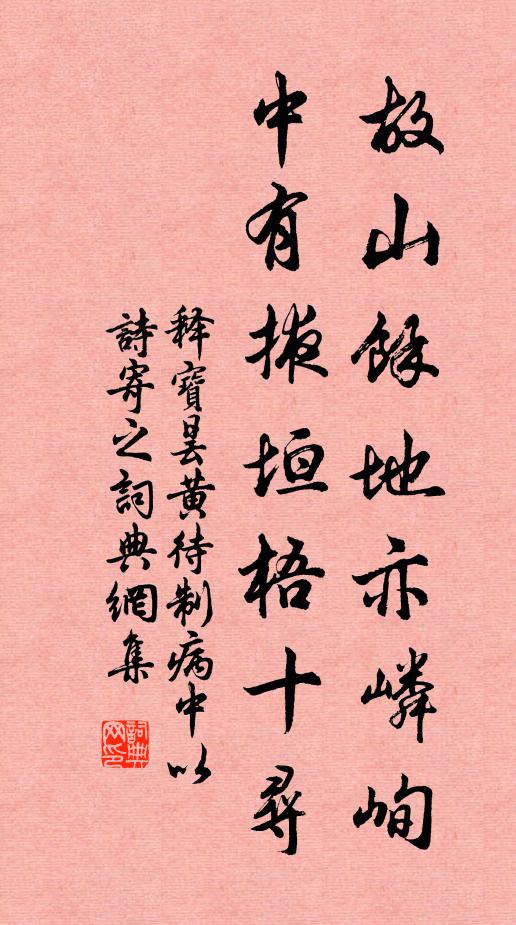 故山餘地亦嶙峋
中有掖垣梧十尋
释寶曇黄待制病中以
詩寄之詞典網集
詞典
网印